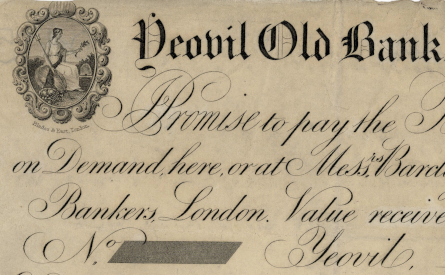 Yeovil Old Bank
Promise to pay the
on Demand, here, or at Mess.rs Barc
Bankers, London. Value receive
No. Yeovil,